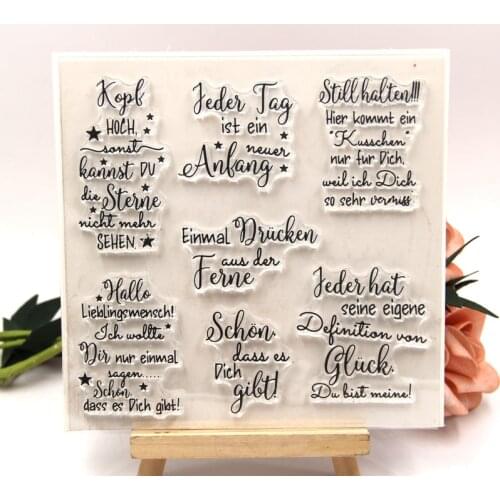 Kopf
HOCH,
sonst
kannst DU
die Sterne
nicht mehr
SEHEN.
Jeder Tag
ist ein
neuer
Anfang
Still halten!!!
Hier kommt ein
"Kusschen"
nur für Dich,
weil ich Dich
so sehr vermiss
Einmal Drücken
aus der
Ferne
Hallo
Lieblingsmensch!
Ich wollte
Dir nur einmal
sagen.....
Schön,
dass es Dich gibt!
Schön,
dass es
Dich
gibt!
Jeder hat
seine eigene
Definition von
Glück.
Du bist meine!